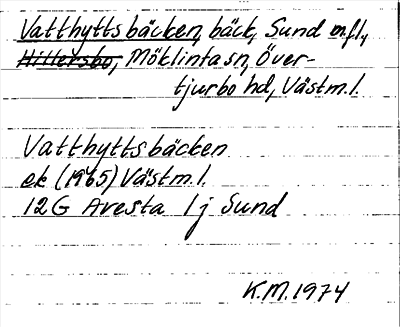 Vatthyttsbäcken, bäck, Sund m.fl.,
Hillersbo, Möklinta sn, Över-
tjurbo hd, Västm.l.
Vatthyttsbäcken
ek (1965) Västm.l.
12G Avesta 1j Sund
K.M. 1974